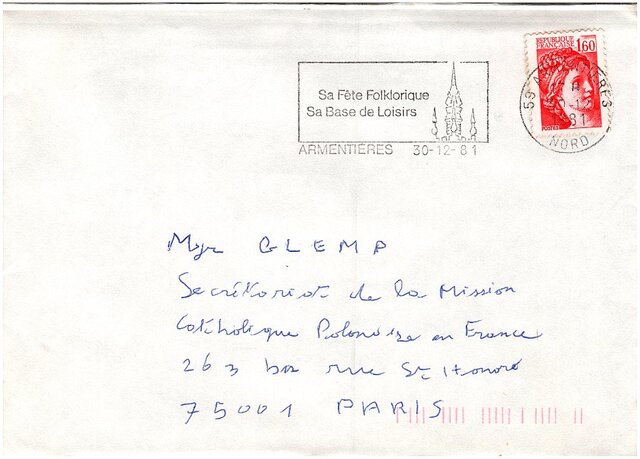 REPUBLIQUE
FRANCAISE 1,60
POSTES
Sa Fête Folklorique
Sa Base de Loisirs
ARMENTIERES 30-12-81
59 ARMENTIERES
81
NORD
Mgr GLEMP
Secrétariat de la Mission
Catholique Polonaise en France
263 bis rue St Honoré
75001 PARIS